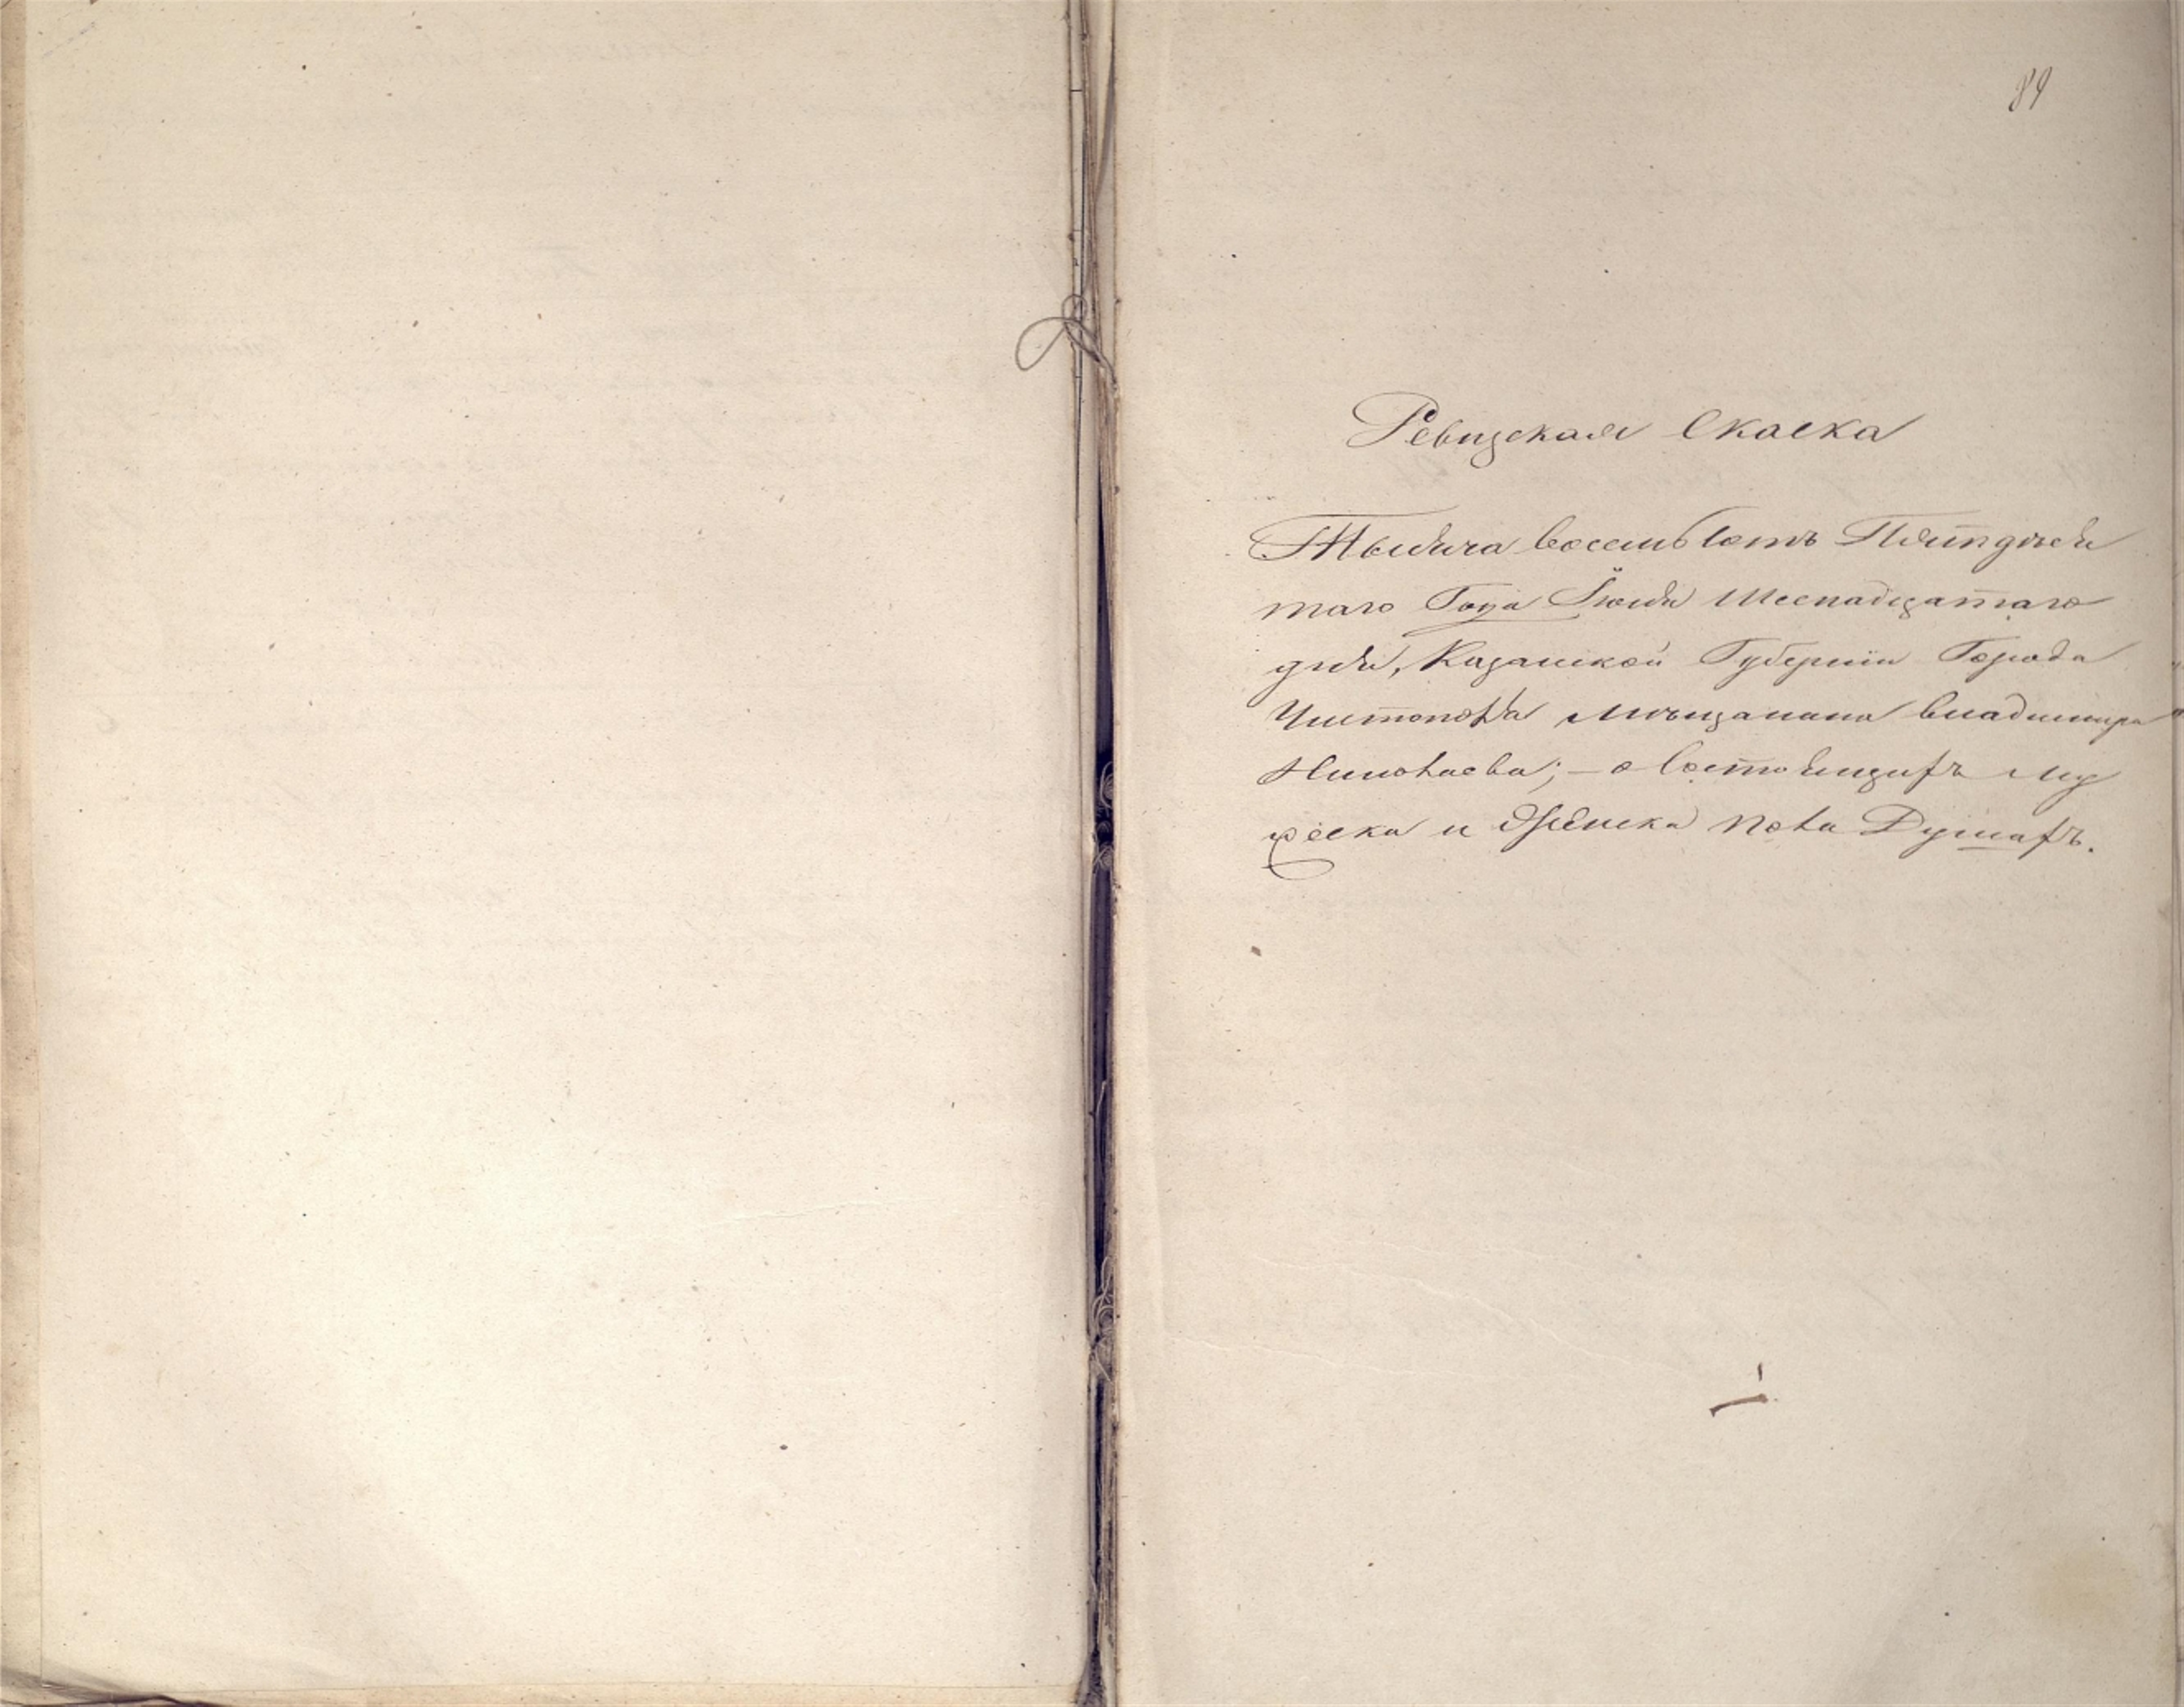 84
Ревизская Скаска
Тысяча восемьсотъ Пятидеся
таго Года Іюня Шеснадцатаго
дня, Казанской Губерніи Города
Чистополя мѣщанина владимира
Николаева; – о состоящихъ му
жеска и Женска пола Душахъ.